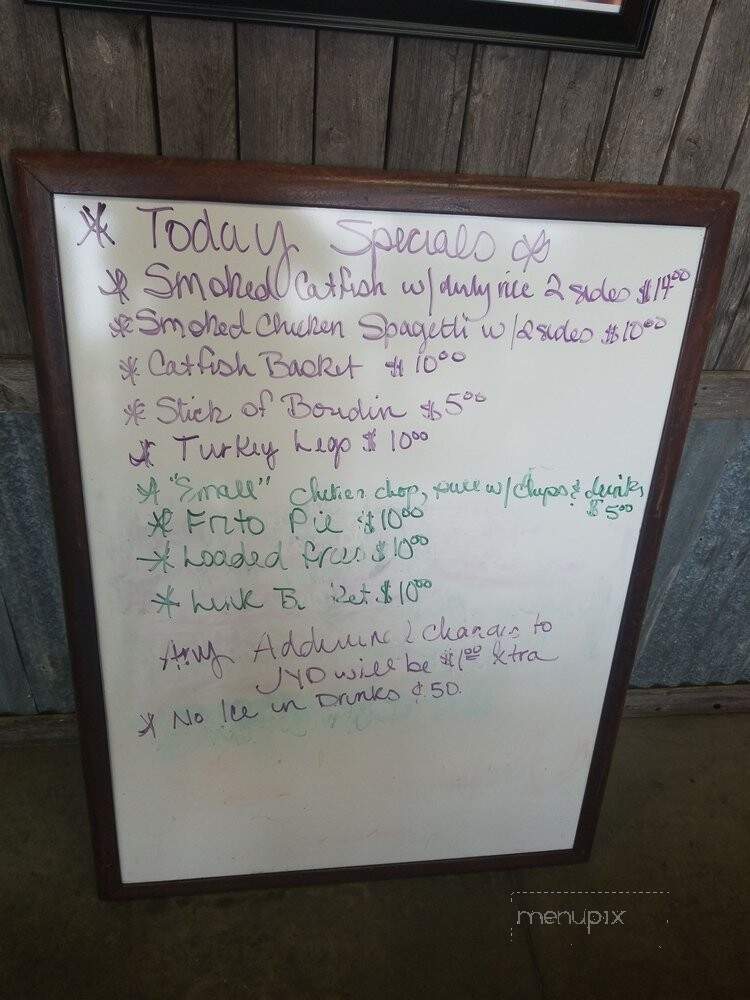 * Today Specials
* Smoked Catfish w/ duty rice 2 sides $14⁰⁰
* Smoked Chicken Spagetti w/2 sides $10⁰⁰
* Catfish Basket $10⁰⁰
* Stick of Boudin $5⁰⁰
* Turkey Legs $10⁰⁰
* "Small" chop, w/ Chips & drinks
$5⁰⁰
* Frito Pie $10⁰⁰
* Loaded fries $10⁰⁰
* Link $10⁰⁰
Any changes to
JYD will be $1⁰⁰ Xtra
* No Ice in Drinks ¢50.
menupix